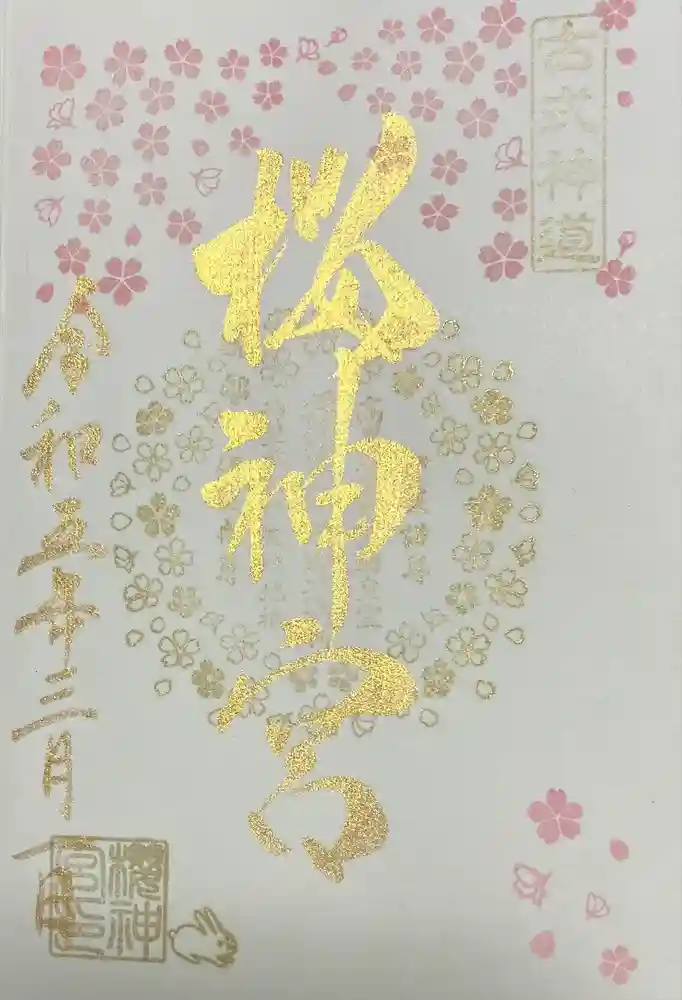 古式神道
桜神宮
令和五年三月一日
櫻神宮印